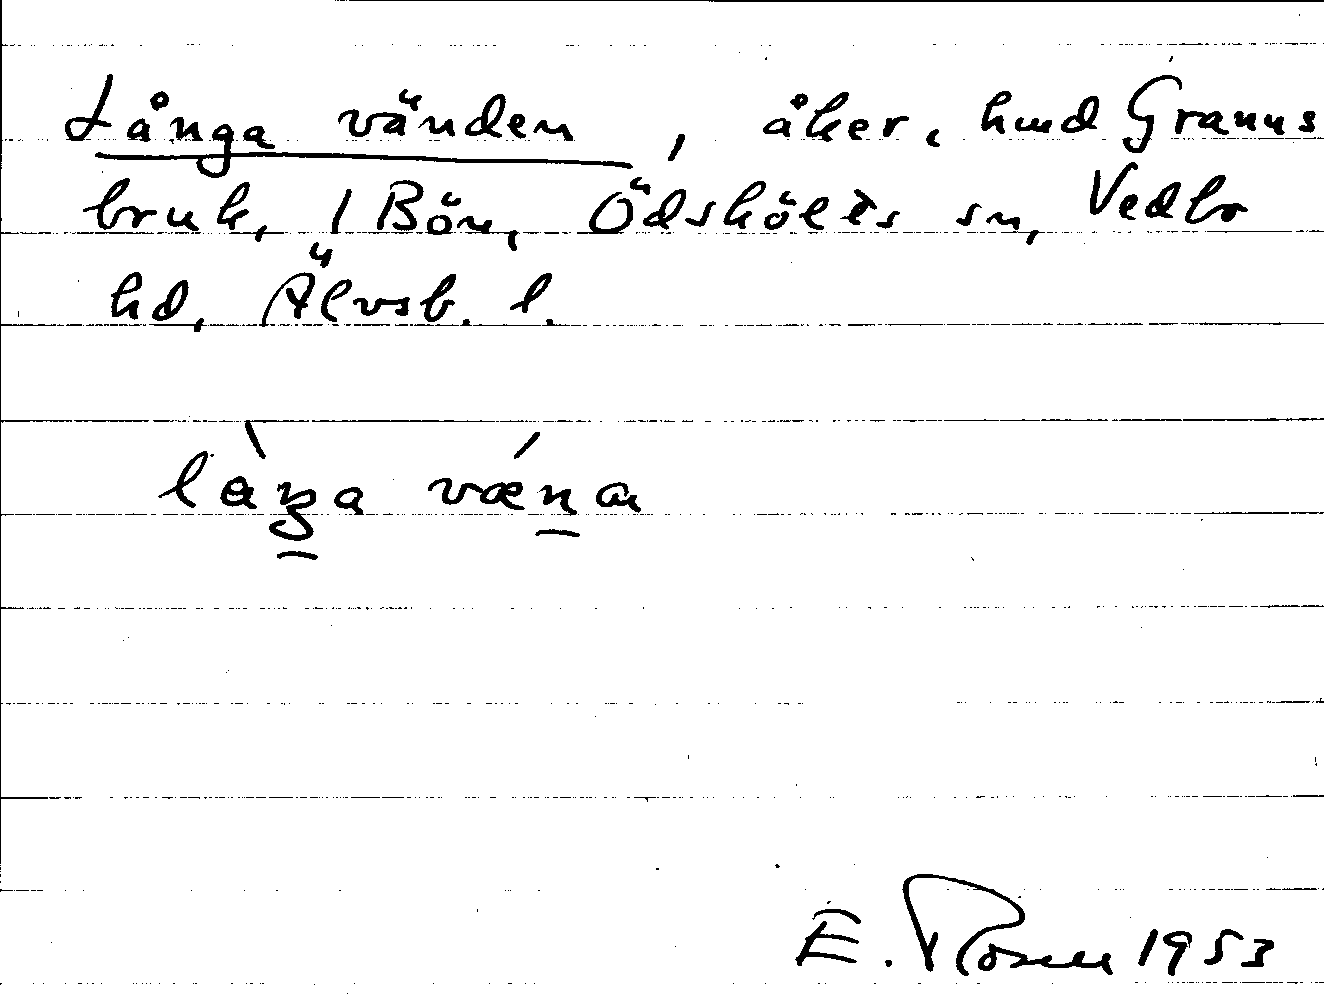 Långa vänden, åker, hmd Granns
bruk, 1 Bön, Ödskölts sn, Vedbo
hd, Älvsb. l.
làŋa vǽna
E. Rosell 1953